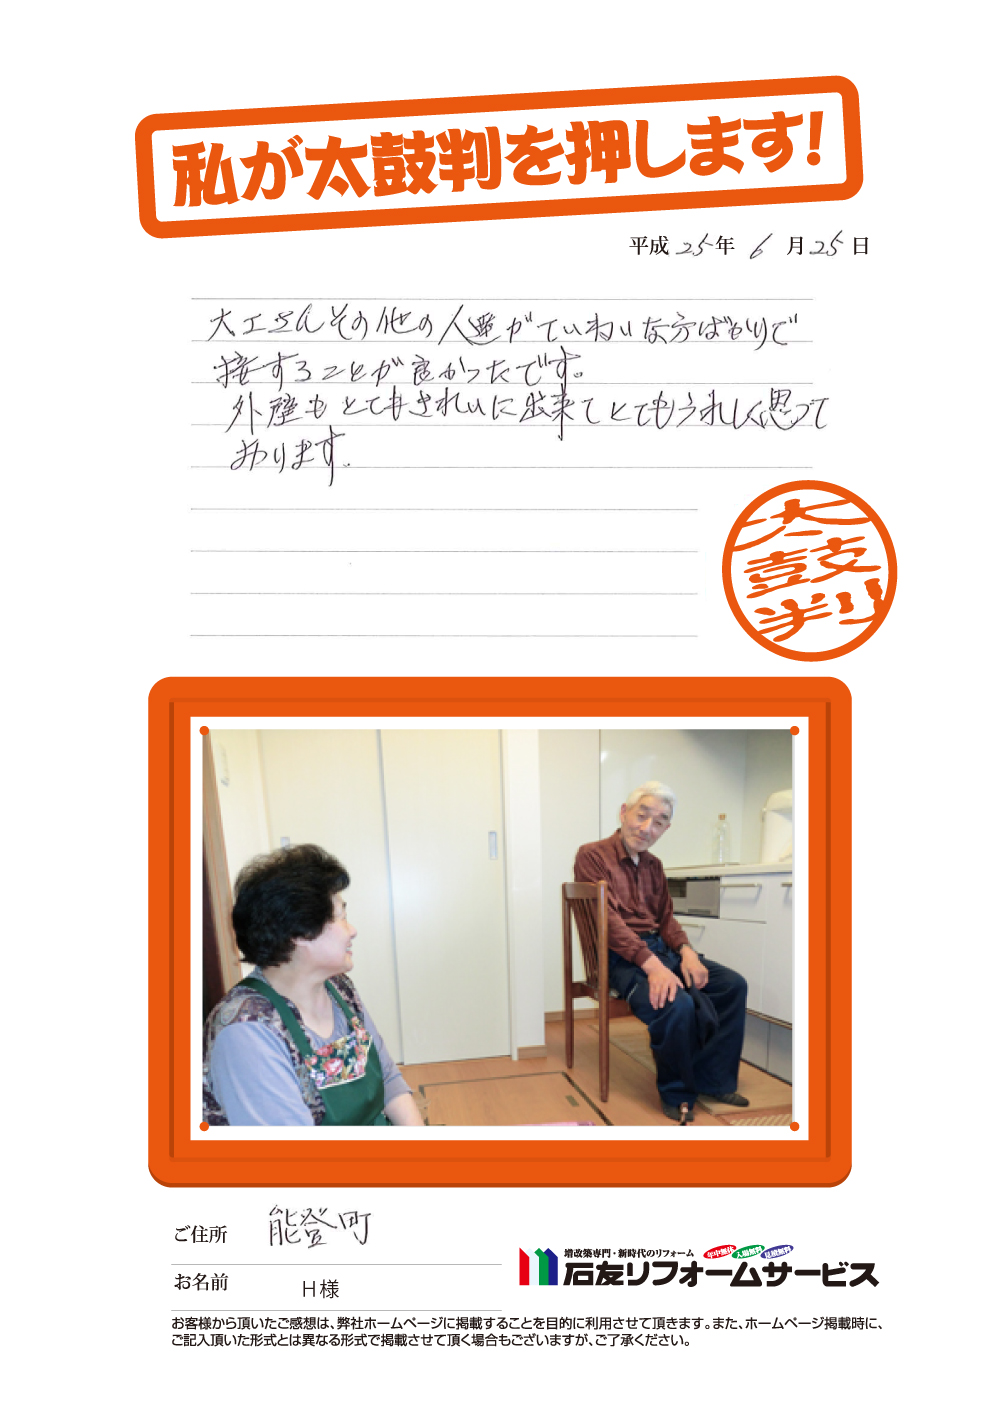 私が太鼓判を押します!
平成25年 6月25日
大工さんその他の人達がていねいな方ばかりで
接することが良かったです。
外壁もとてもきれいに出来てとてもうれしく思って
おります。
太鼓判
ご住所 能登町
お名前 H様
増改築専門・新時代のリフォーム 年中無休 入場無料 見積無料
石友リフォームサービス
お客様から頂いたご感想は、弊社ホームページに掲載することを目的に利用させて頂きます。また、ホームページ掲載時に、
ご記入頂いた形式とは異なる形式で掲載させて頂く場合もございますが、ご了承ください。